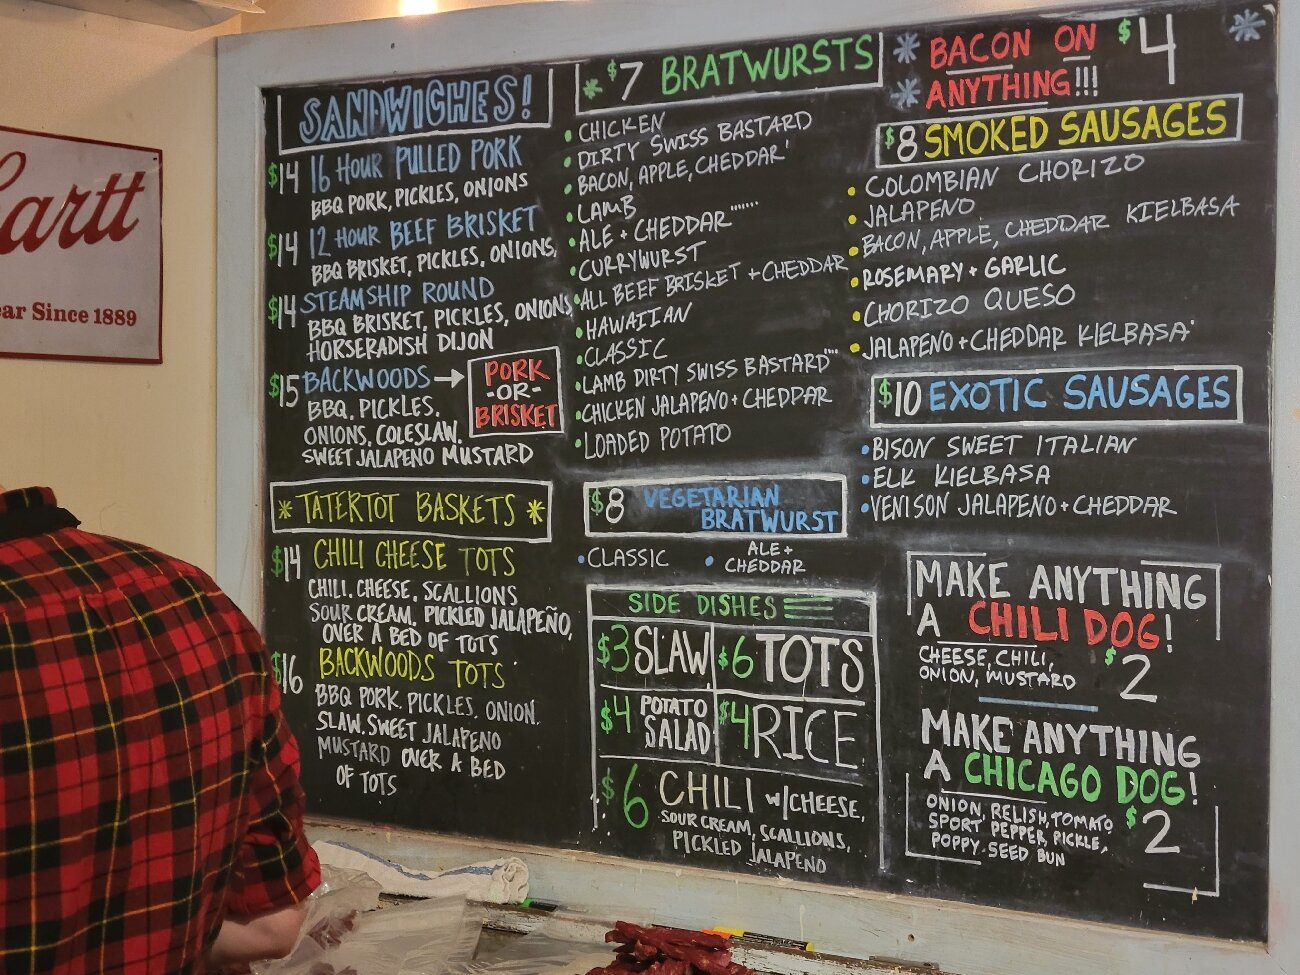 artt
ear Since 1889
SANDWICHES!
$14 16 HOUR PULLED PORK
BBQ PORK, PICKLES, ONIONS
$14 12 HOUR BEEF BRISKET
BBQ BRISKET, PICKLES, ONIONS,
$14 STEAMSHIP ROUND
BBQ BRISKET, PICKLES, ONIONS,
HORSERADISH DIJON
$15 BACKWOODS →
PORK
-OR-
BRISKET
BBQ, PICKLES,
ONIONS, COLESLAW,
SWEET JALAPENO MUSTARD
* TATERTOT BASKETS *
$14 CHILI CHEESE TOTS
CHILI, CHEESE, SCALLIONS
SOUR CREAM, PICKLED JALAPEÑO,
OVER A BED OF TOTS
$16 BACKWOODS TOTS
BBQ PORK, PICKLES, ONION,
SLAW, SWEET JALAPENO
MUSTARD OVER A BED
OF TOTS
* $7 BRATWURSTS
• CHICKEN
• DIRTY SWISS BASTARD
• BACON, APPLE, CHEDDAR
• LAMB
• ALE + CHEDDAR
• CURRYWURST
• ALL BEEF BRISKET + CHEDDAR
• HAWAIIAN
• CLASSIC
• LAMB DIRTY SWISS BASTARD
• CHICKEN JALAPENO + CHEDDAR
• LOADED POTATO
$8 VEGETARIAN
BRATWURST
• CLASSIC
• ALE +
CHEDDAR
SIDE DISHES
$3 SLAW
$6 TOTS
$4 POTATO
SALAD
$4 RICE
$6 CHILI W/CHEESE,
SOUR CREAM, SCALLIONS,
PICKLED JALAPENO
* BACON ON $4 *
* ANYTHING!!!
$8 SMOKED SAUSAGES
• COLOMBIAN CHORIZO
• JALAPENO
• BACON, APPLE, CHEDDAR KIELBASA
• ROSEMARY + GARLIC
• CHORIZO QUESO
• JALAPENO + CHEDDAR KIELBASA
$10 EXOTIC SAUSAGES
• BISON SWEET ITALIAN
• ELK KIELBASA
• VENISON JALAPENO + CHEDDAR
MAKE ANYTHING
A CHILI DOG!
CHEESE, CHILI,
ONION, MUSTARD
$2
MAKE ANYTHING
A CHICAGO DOG!
ONION, RELISH, TOMATO,
SPORT PEPPER, PICKLE,
POPPY SEED BUN
$2